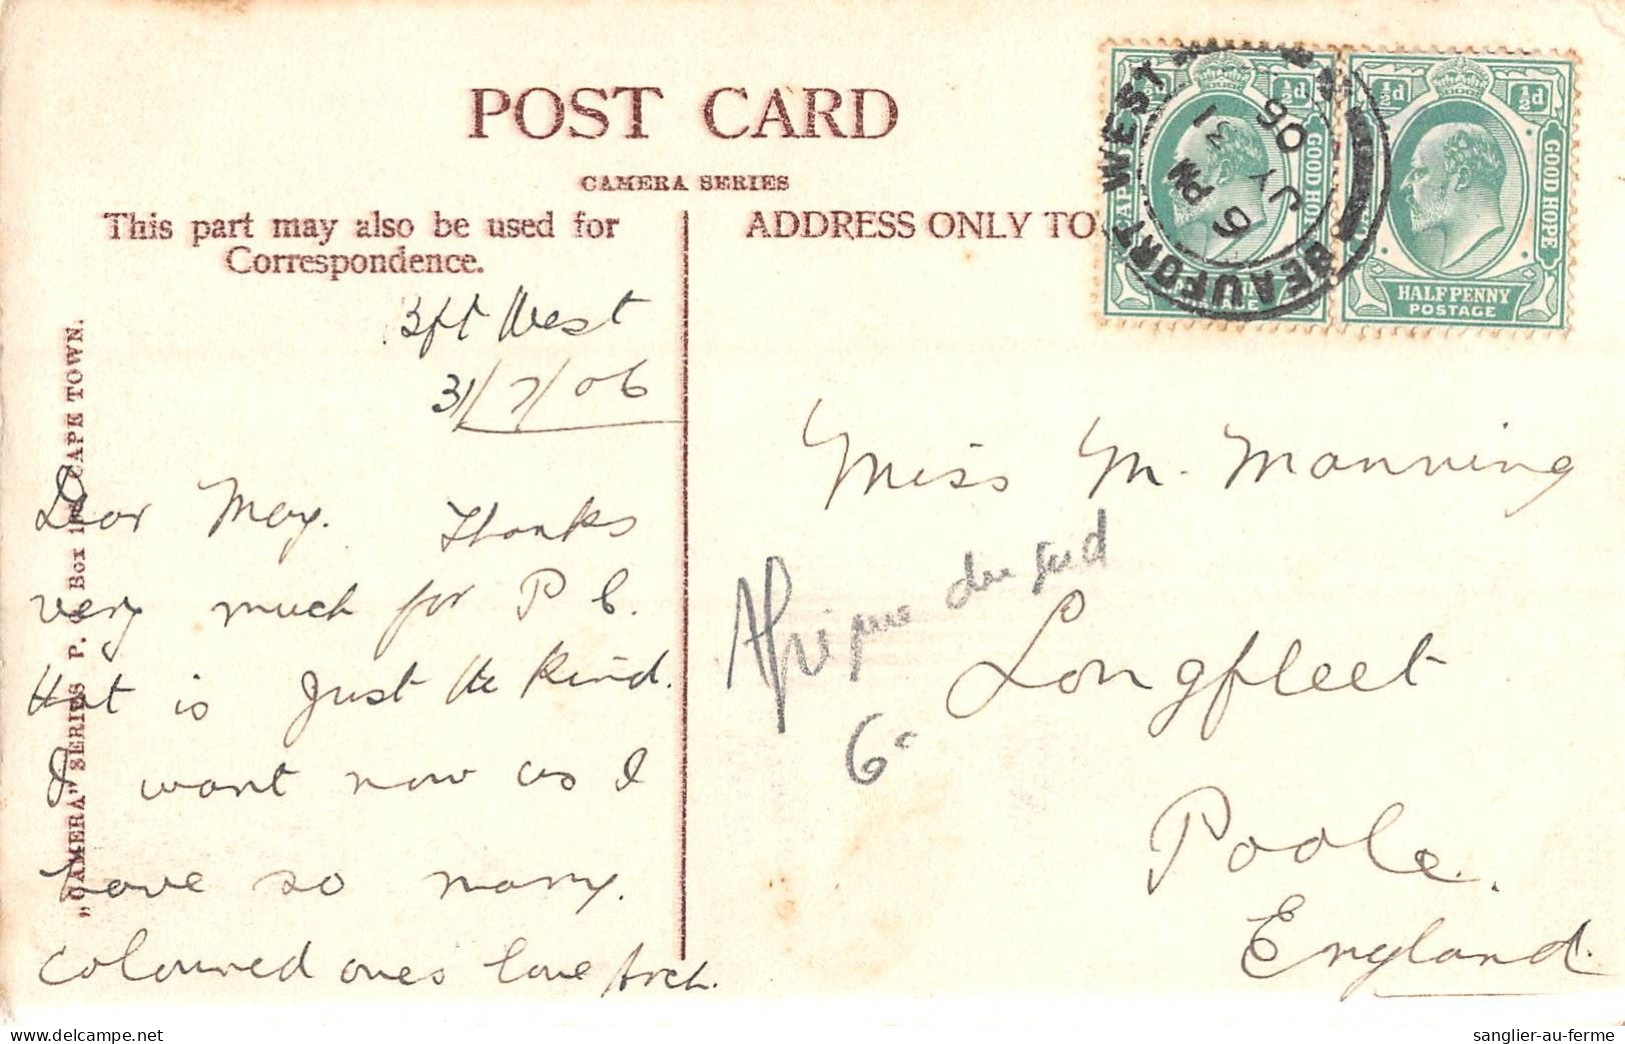 POST CARD
CAMERA SERIES
This part may also be used for
Correspondence.
ADDRESS ONLY TO
"CAMERA" SERIES P. O. Box CAPE TOWN.
Bft West
31/7/06
Dear May. Thanks
very much for P C.
that is just the kind.
I want now as I
have so many.
coloured ones love Arch.
Miss M. Manning
Longfleet
Poole.
England.
Afrique du sud
6-
BEAUFORT WEST
6 PM
JY 31
06
½d
GOOD HOPE
½d
½d
GOOD HOPE
HALFPENNY
POSTAGE
sanglier-au-ferme